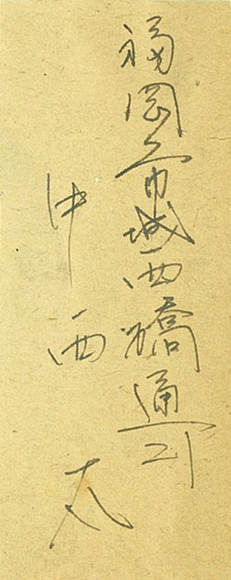 福岡市城西橋通り
中西太